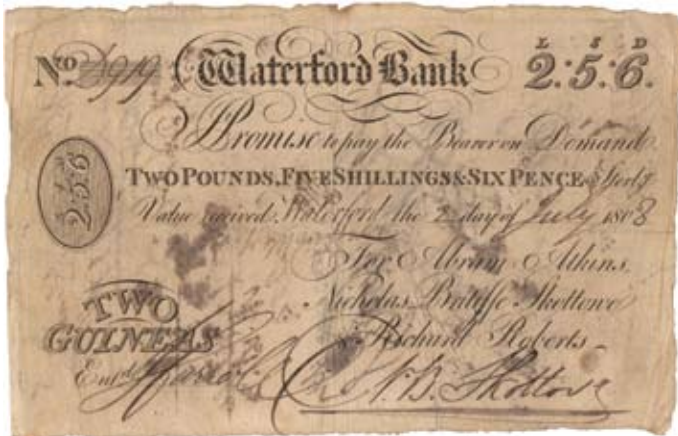 L S D
No. 2919 Waterford Bank 2.5.6.
I Promise to pay the Bearer on Demand
TWO POUNDS, FIVE SHILLINGS & SIX PENCE
2.5.6
Value received Waterford the 2 day of July 1808
For Abram Atkins,
Nicholas Skottowe
TWO
GUINEAS
Richard Roberts
Entd. N. B. Skottowe